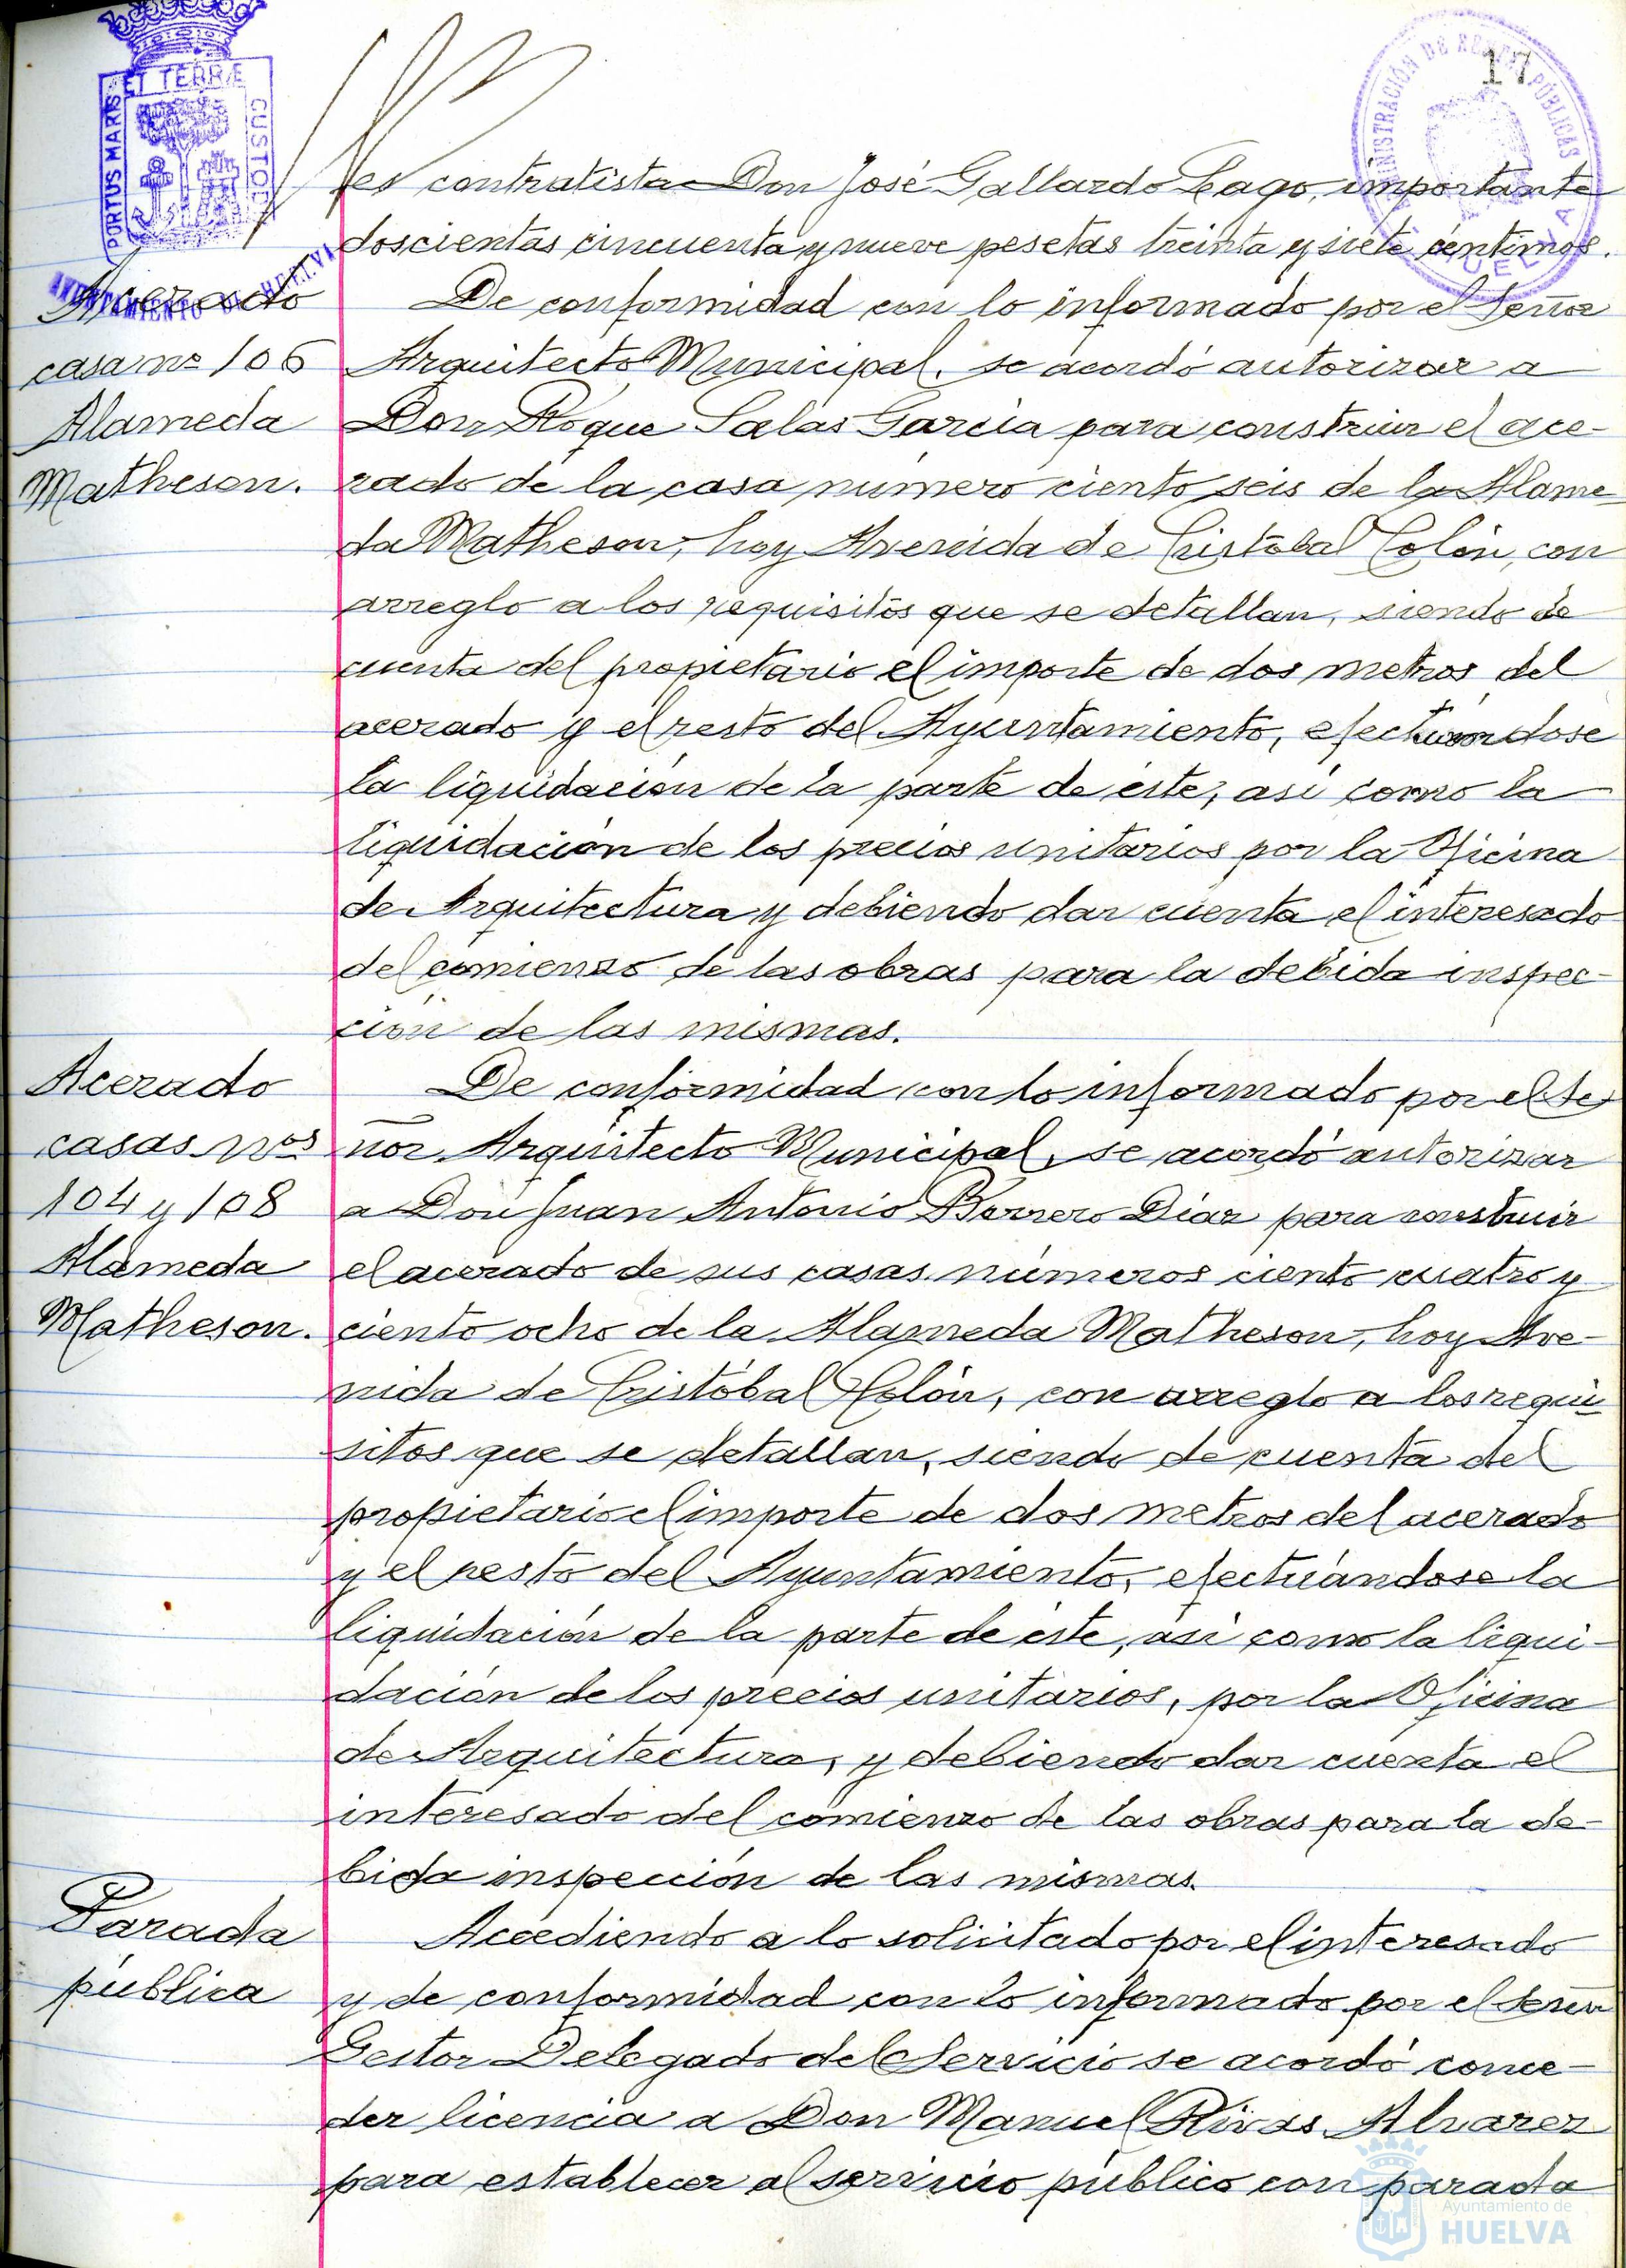 17
PORTUS MARIS ET TERRÆ CUSTODIA
AYUNTAMIENTO DE HUELVA
ADMINISTRACIÓN DE RENTAS PÚBLICAS
HUELVA
es contratista Don José Gallardo Lago, importante
doscientas cincuenta y nueve pesetas treinta y siete céntimos.
Acerado
casa nº 106
Alameda
Matheson.
De conformidad con lo informado por el Señor
Arquitecto Municipal, se acordó autorizar a
Don Roque Salas García para construir el ace-
rado de la casa número ciento seis de la Alame-
da Matheson, hoy Avenida de Cristóbal Colón, con
arreglo a los requisitos que se detallan, siendo de
cuenta del propietario el importe de dos metros del
acerado y el resto del Ayuntamiento, efectuándose
la liquidación de la parte de éste, así como la
liquidación de los precios unitarios por la Oficina
de Arquitectura y debiendo dar cuenta el interesado
del comienzo de las obras para la debida inspec-
ción de las mismas.
Acerado
casas nos
104 y 108
Alameda
Matheson.
De conformidad con lo informado por el Se-
ñor Arquitecto Municipal, se acordó autorizar
a Don Juan Antonio Borrero Díaz para construir
el acerado de sus casas números ciento cuatro y
ciento ocho de la Alameda Matheson, hoy Ave-
nida de Cristóbal Colón, con arreglo a los requi-
sitos que se detallan, siendo de cuenta del
propietario el importe de dos metros del acerado
y el resto del Ayuntamiento, efectuándose la
liquidación de la parte de éste, así como la liqui-
dación de los precios unitarios, por la Oficina
de Arquitectura, y debiendo dar cuenta el
interesado del comienzo de las obras para la de-
bida inspección de las mismas.
Parada
pública
Accediendo a lo solicitado por el interesado
y de conformidad con lo informado por el Señor
Gestor Delegado del Servicio se acordó conce-
der licencia a Don Manuel Rivas Alvarez
para establecer al servicio público con parada
Ayuntamiento de
HUELVA